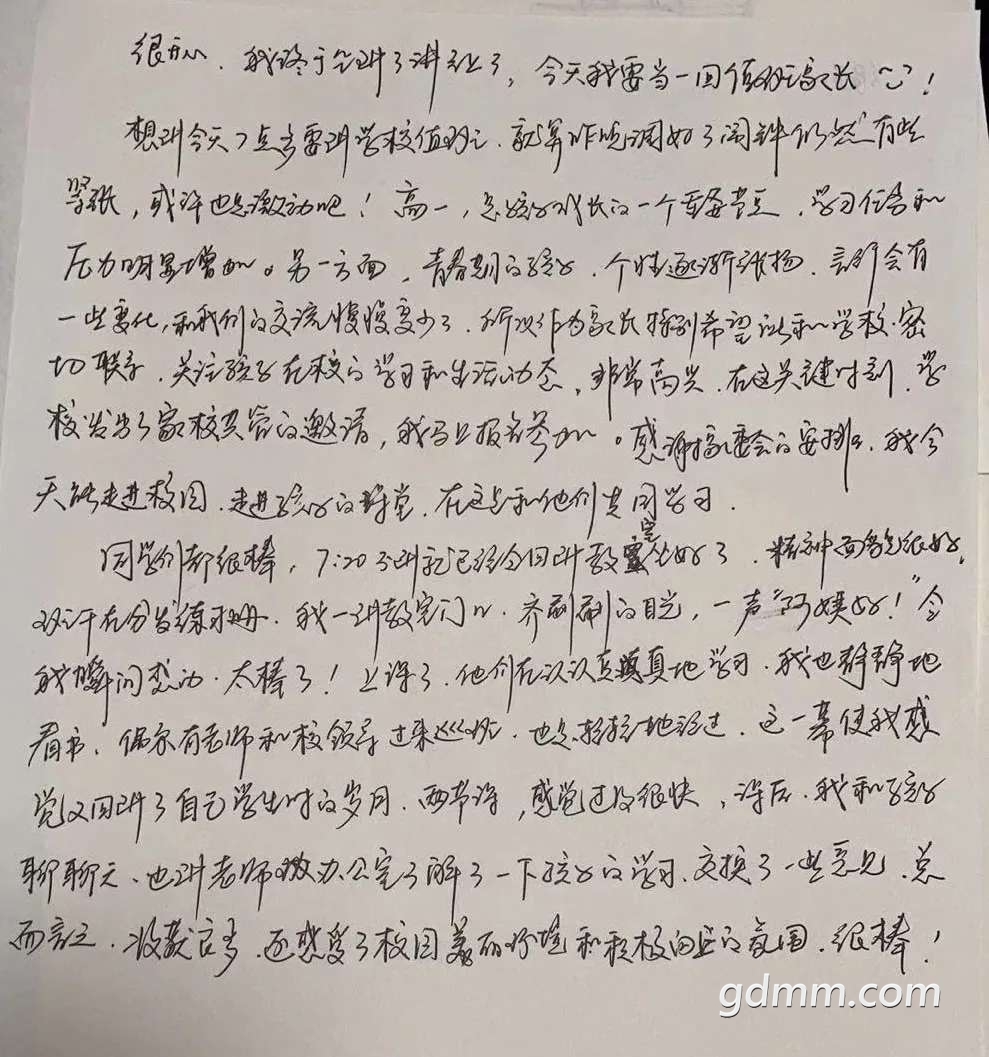 很开心,我终于轮到了,今天我要当一回值班家长!
想到今天7点多要到学校值班,就算昨晚调好了闹钟仍然有些
紧张,或许也是激动吧!高一,是孩子成长的一个重要节点,学习任务和
压力明显增加。另一方面,青春期的孩子,个性逐渐张扬,言行会有
一些变化,和我们的交流慢慢变少了,所以作为家长特别希望能和学校密
切联系,关注孩子在校的学习和生活动态,非常高兴,在这关键时刻,学
校发出了家校共管的邀请,我马上报名参加。感谢家委会的安排,我今
天能走进校园,走进孩子的课堂,在这里和他们共同学习.
同学们都很棒,7:20不到就已经全回到教室坐好了,精神面貌很好,
有些在分发练习册,我一到教室门口,齐刷刷的目光,一声"阿姨好!"令
我瞬间感动,太棒了!上课了,他们在认认真真地学习,我也静静地
看书,偶尔有老师和校领导过来巡班,也是轻轻地经过,这一幕使我感
觉又回到了自己学生时的岁月,两节课,感觉过得很快,课后,我和孩子
聊聊天,也到老师办公室了解了一下孩子的学习,交换了一些意见,总
而言之,收获良多,还感受了校园美丽环境和积极向上的氛围,很棒!
gdmm.com